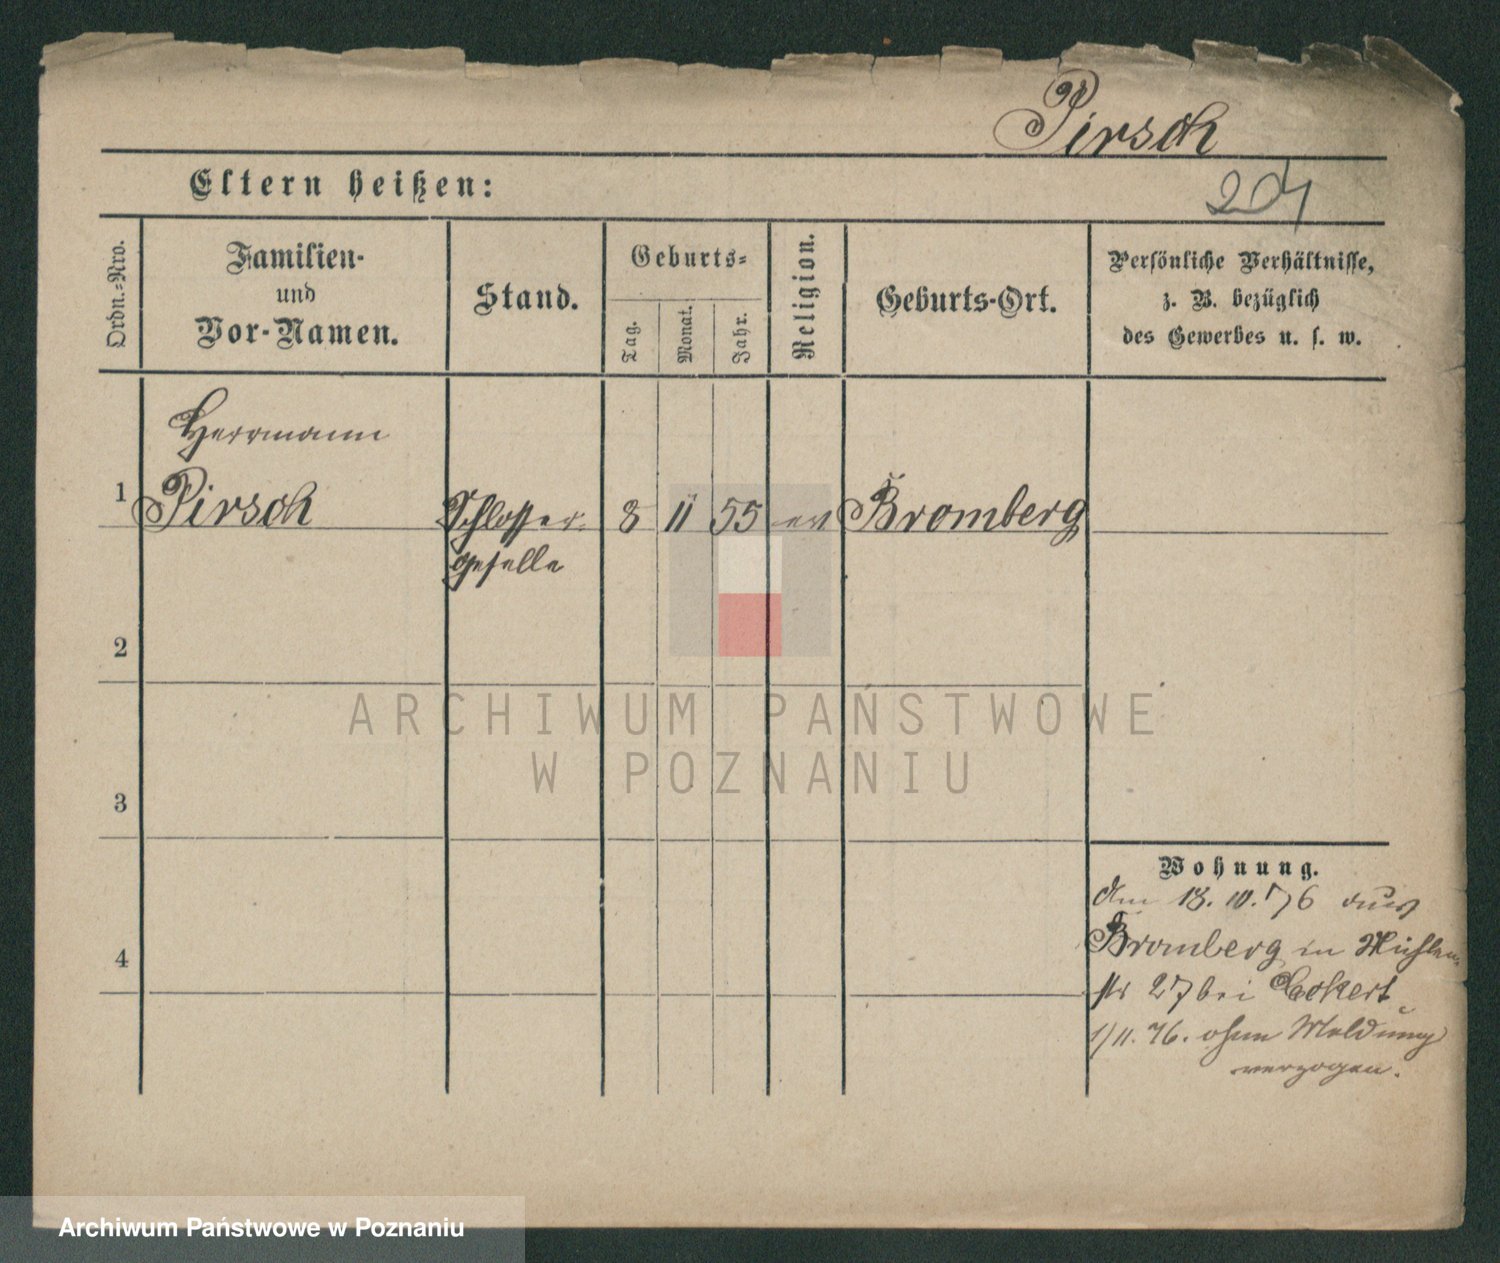 Pirsch
Eltern heißen:
204
Ordn.-Nro.
Familien-
und
Vor-Namen.
Stand.
Geburts-
Tag.
Monat.
Jahr.
Religion.
Geburts-Ort.
Persönliche Verhältnisse,
z. B. bezüglich
des Gewerbes u. s. w.
Herrmann
1 Pirsch Schlosser- 8 11 55 ev Bromberg
geselle
2
ARCHIWUM PAŃSTWOWE
W POZNANIU
3
Wohnung.
Am 18.10.76 aus
4 Bromberg in Mühlen
str 27 bei Eckert
1/11.76. ohne Meldung
verzogen.
Archiwum Państwowe w Poznaniu